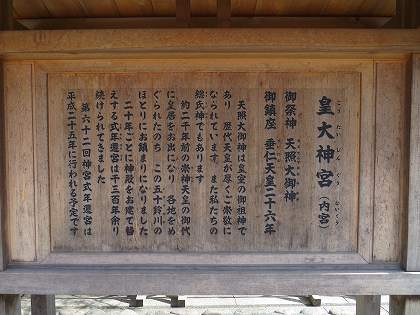 皇大神宮（内宮）
こうたいじんぐう ないくう
御祭神 天照大御神
御鎮座 垂仁天皇二十六年
天照大御神は皇室の御祖神で
あり 歴代天皇が厚くご崇敬に
なられています また私たちの
総氏神でもあります
約二千年前の崇神天皇の御代
に皇居をお出になり 各地をめ
ぐられたのち この五十鈴川の
ほとりにお鎮まりになりました
二十年ごとに神殿をお建て替
えする式年遷宮は千三百年余り
続けられてきました
第六十二回神宮式年遷宮は
平成二十五年に行われる予定です